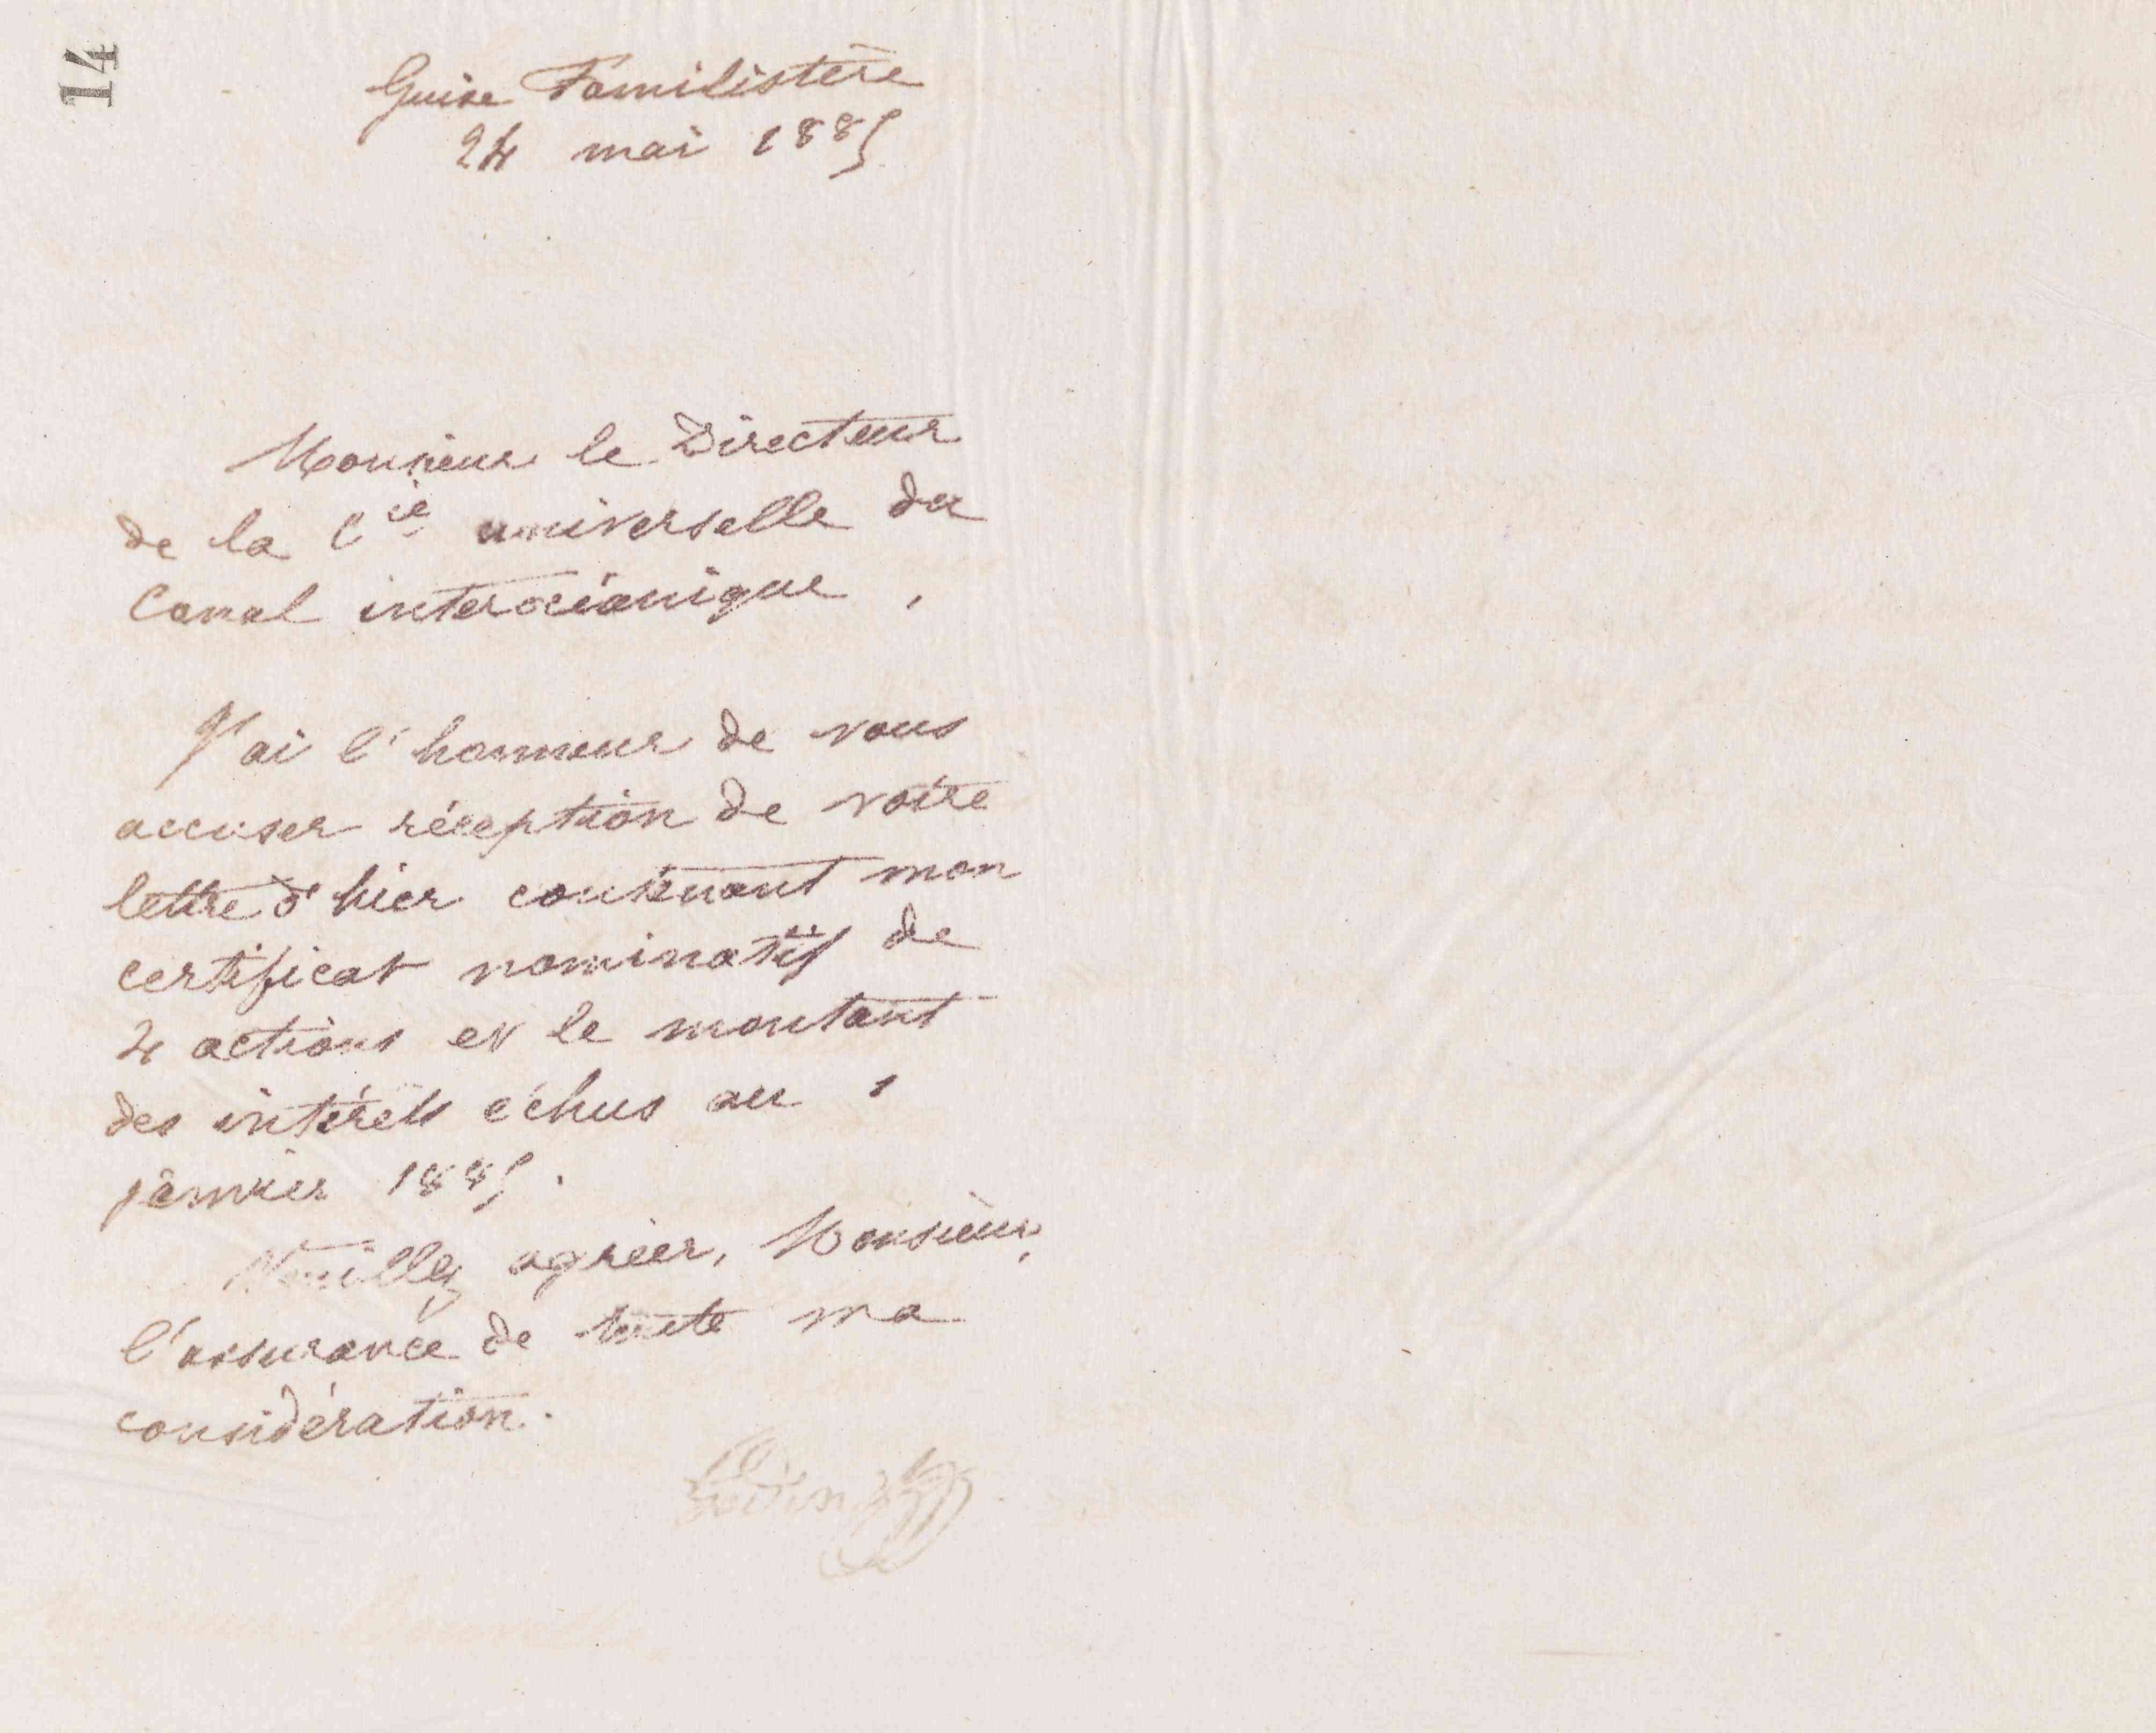 14
Guise Familistère
24 mai 1885
Monsieur le Directeur
de la Cie universelle du
Canal interocéanique,
J'ai l'honneur de vous
accuser réception de votre
lettre d'hier contenant mon
certificat nominatif de
4 actions et le montant
des intérêts échus au 1
janvier 1885.
Veuillez agréer, Monsieur,
l'assurance de toute ma
considération.
Godin